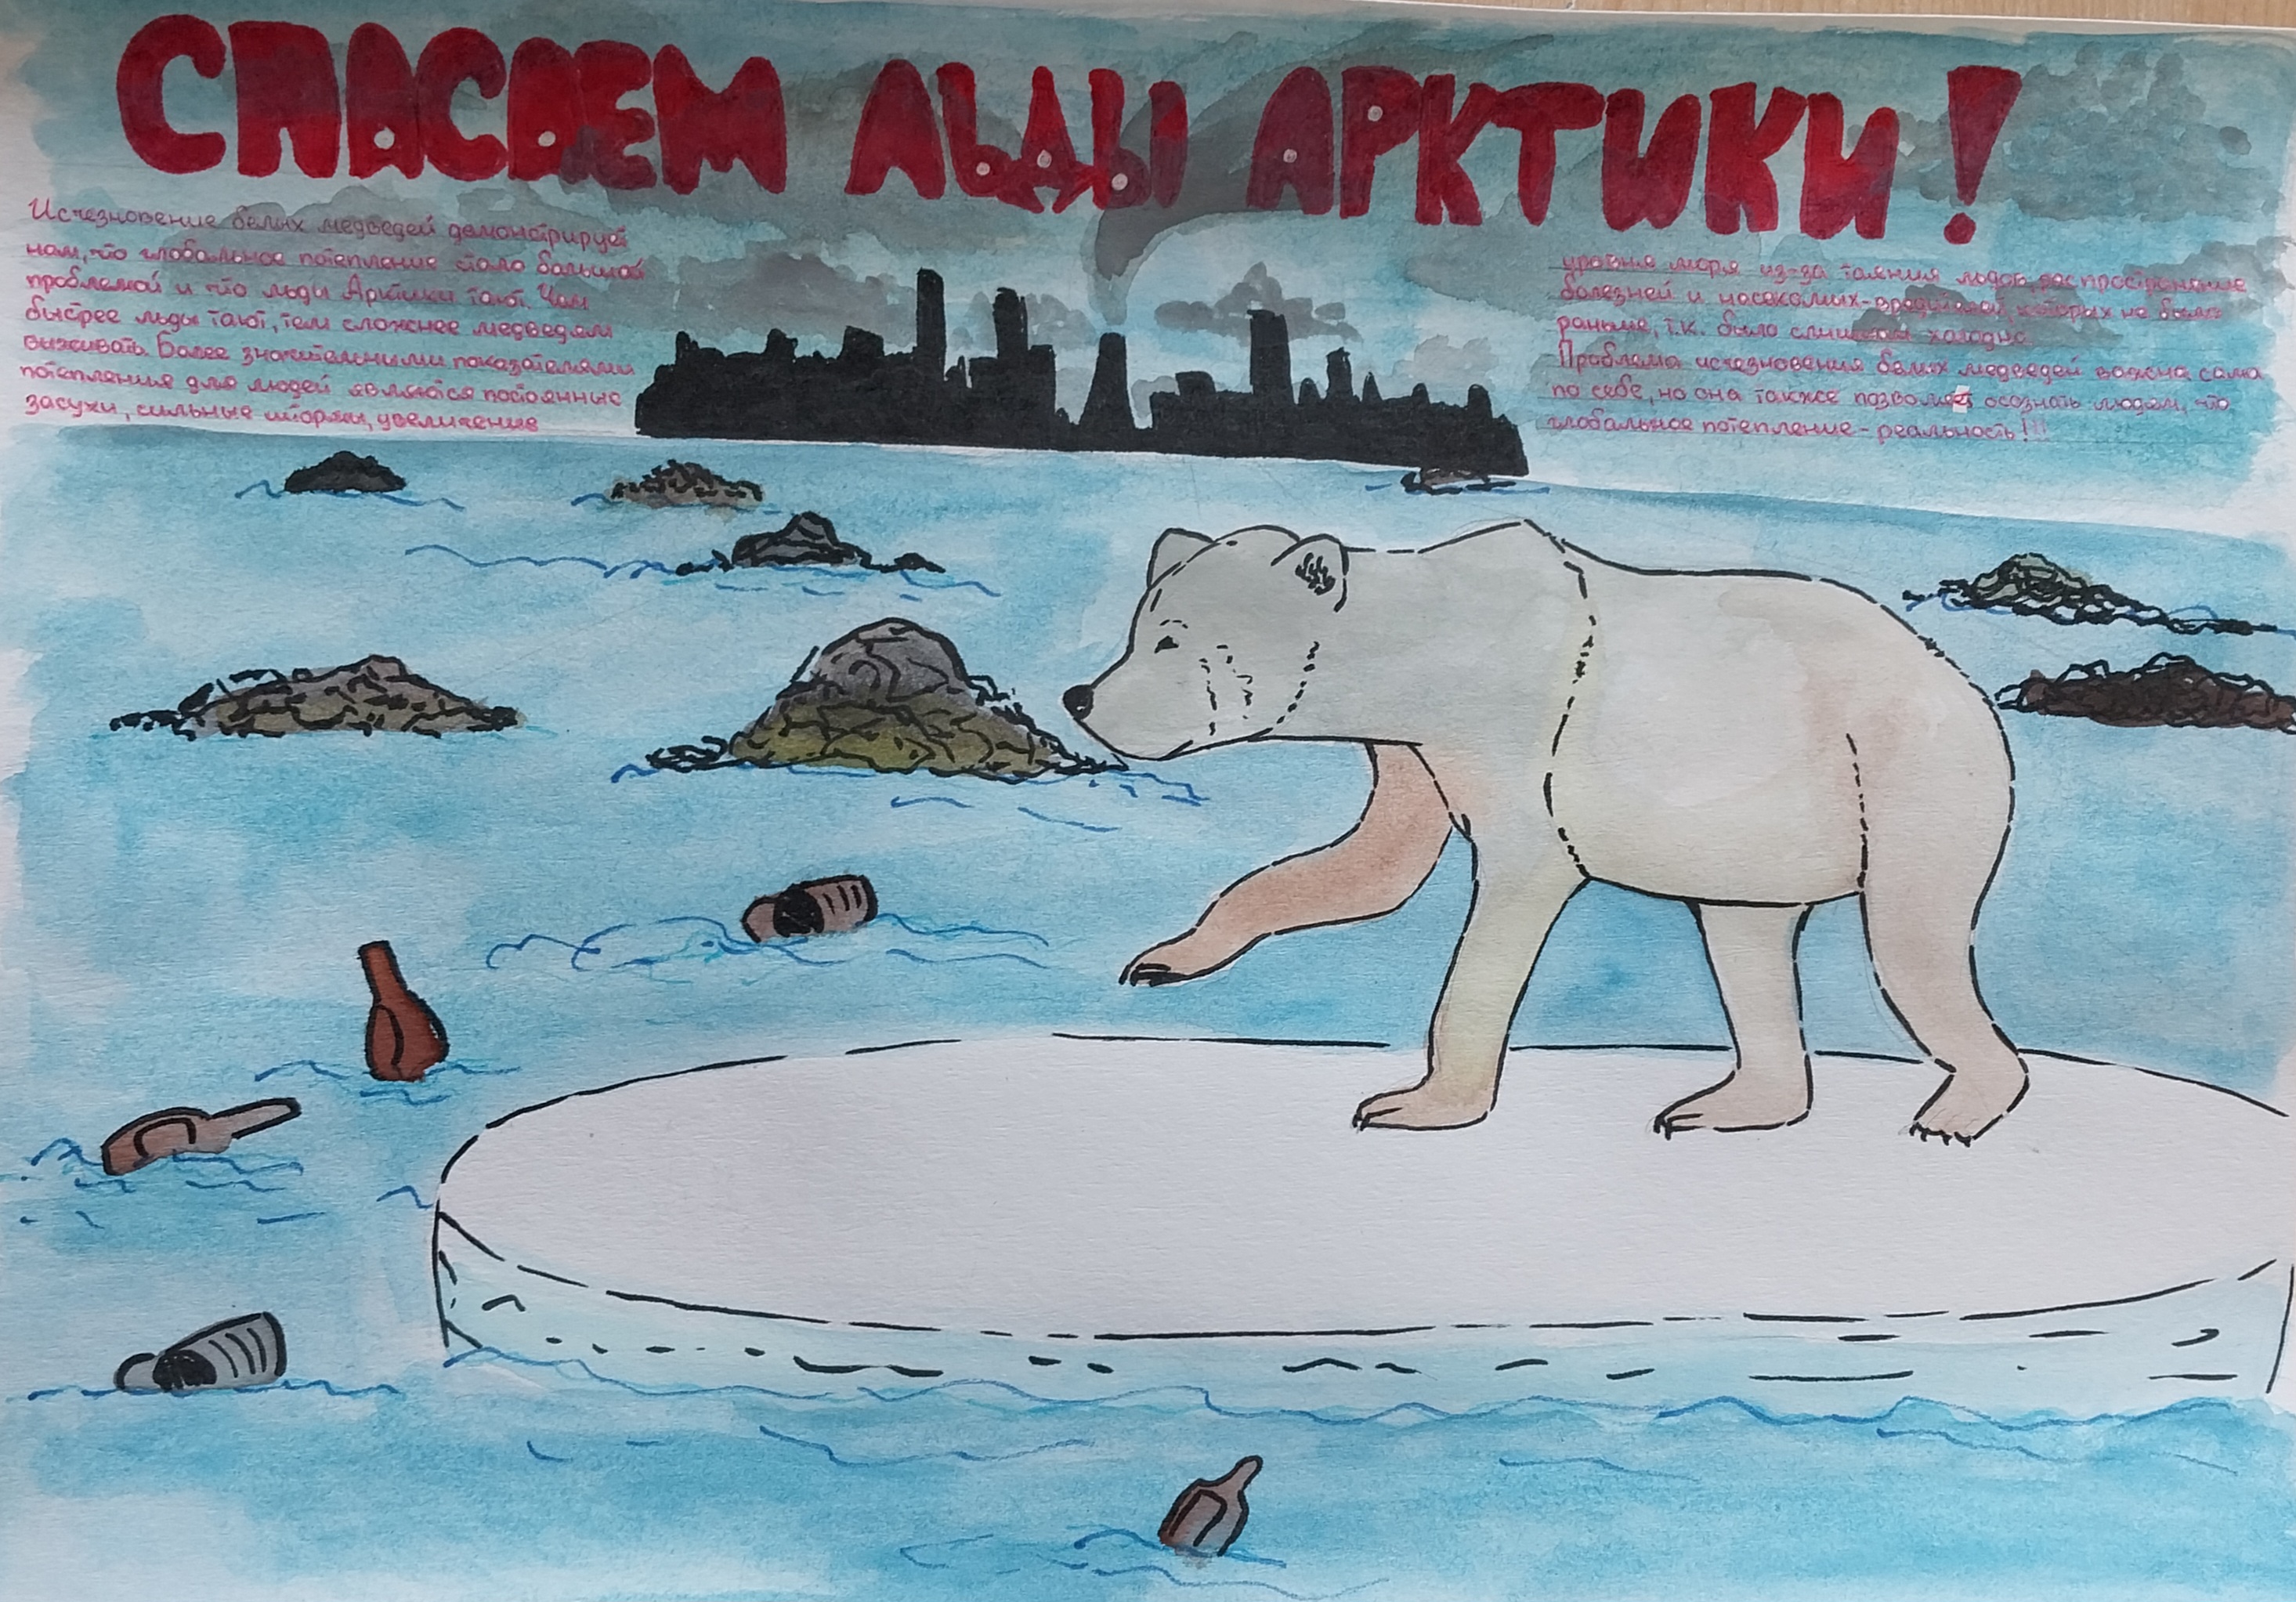 СПАСАЕМ ЛЬДЫ АРКТИКИ!
Исчезновение белых медведей демонстрирует
нам, что глобальное потепление стало большой
проблемой и что льды Арктики тают. Чем
быстрее льды тают, тем сложнее медведям
выживать. Более значительными показателями
потепления для людей являются постоянные
засухи, сильные штормы, увеличение
уровня моря из-за таяния льдов, распространение
болезней и насекомых-вредителей, которых не было
раньше, т.к. было слишком холодно.
Проблема исчезновения белых медведей важна сама
по себе, но она также позволяет осознать людям, что
глобальное потепление - реальность!!!